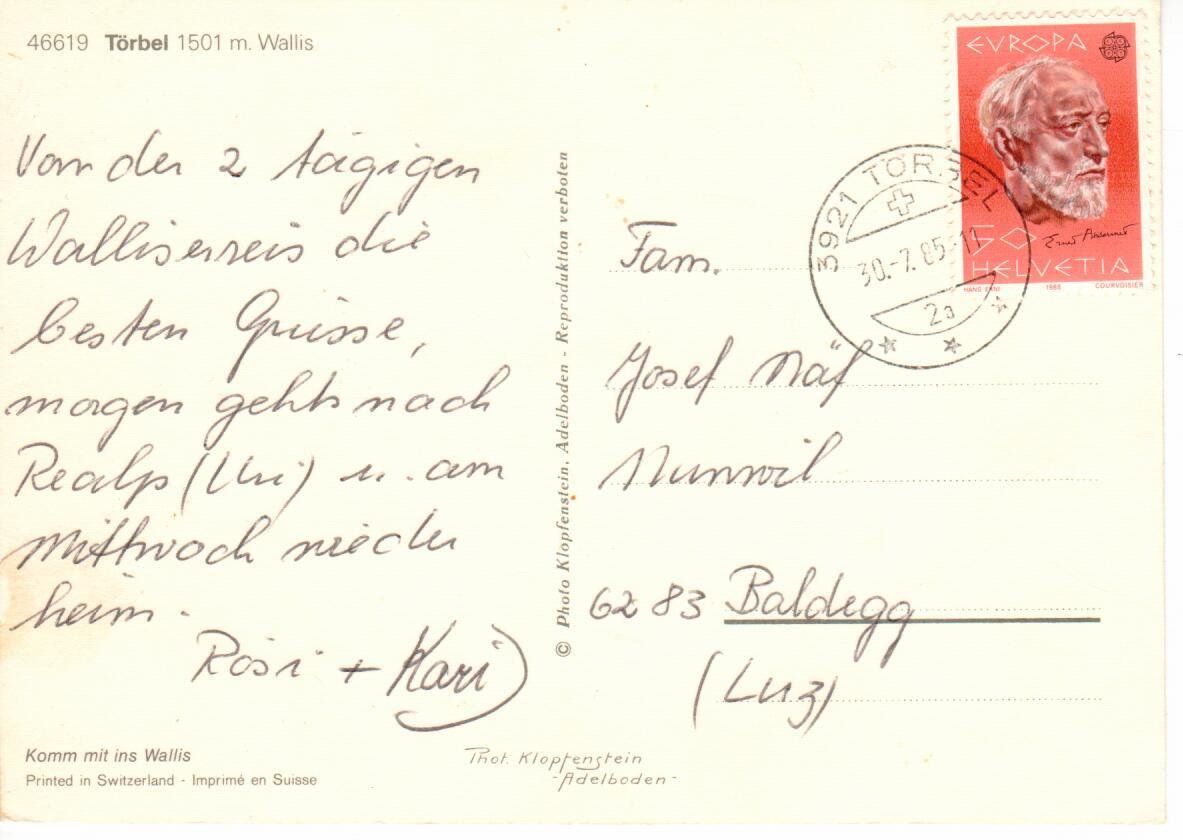 46619 Törbel 1501 m. Wallis
Von der 2 tägigen
Walliserreis die
besten Grüsse,
morgen gehts nach
Realp (Uri) u. am
Mittwoch wieder
heim.
Rösi + Kari
Komm mit ins Wallis
Printed in Switzerland - Imprimé en Suisse
© Photo Klopfenstein, Adelboden - Reproduktion verboten
Phot. Klopfenstein
-Adelboden-
EVROPA
50
HELVETIA
HANS ERNI 1985 COURVOISIER
3921 TÖRBEL
30.-7.85-11
2a
Fam.
Josef Näf
Nunwil
6283 Baldegg
(Luz)